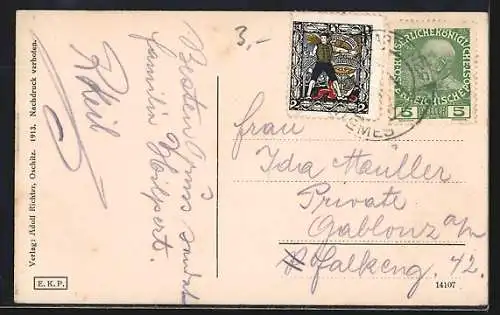 Verlag: Adolf Richter, Oschitz. 1913. Nachdruck verboten.
E.K.P.
Besten Gruss sendet
Familie Hilpert.
3,-
2 2
5 5
Frau
Ida Mauller
Private
Gablonz a/n
Falkeng. 42.
14107